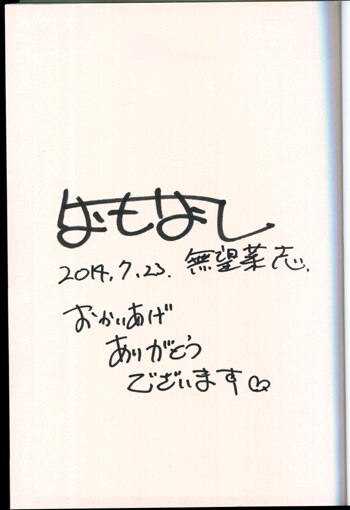 なもなし
2014.7.23. 無望菜志.
おかいあげ
ありがとう
ございます♡